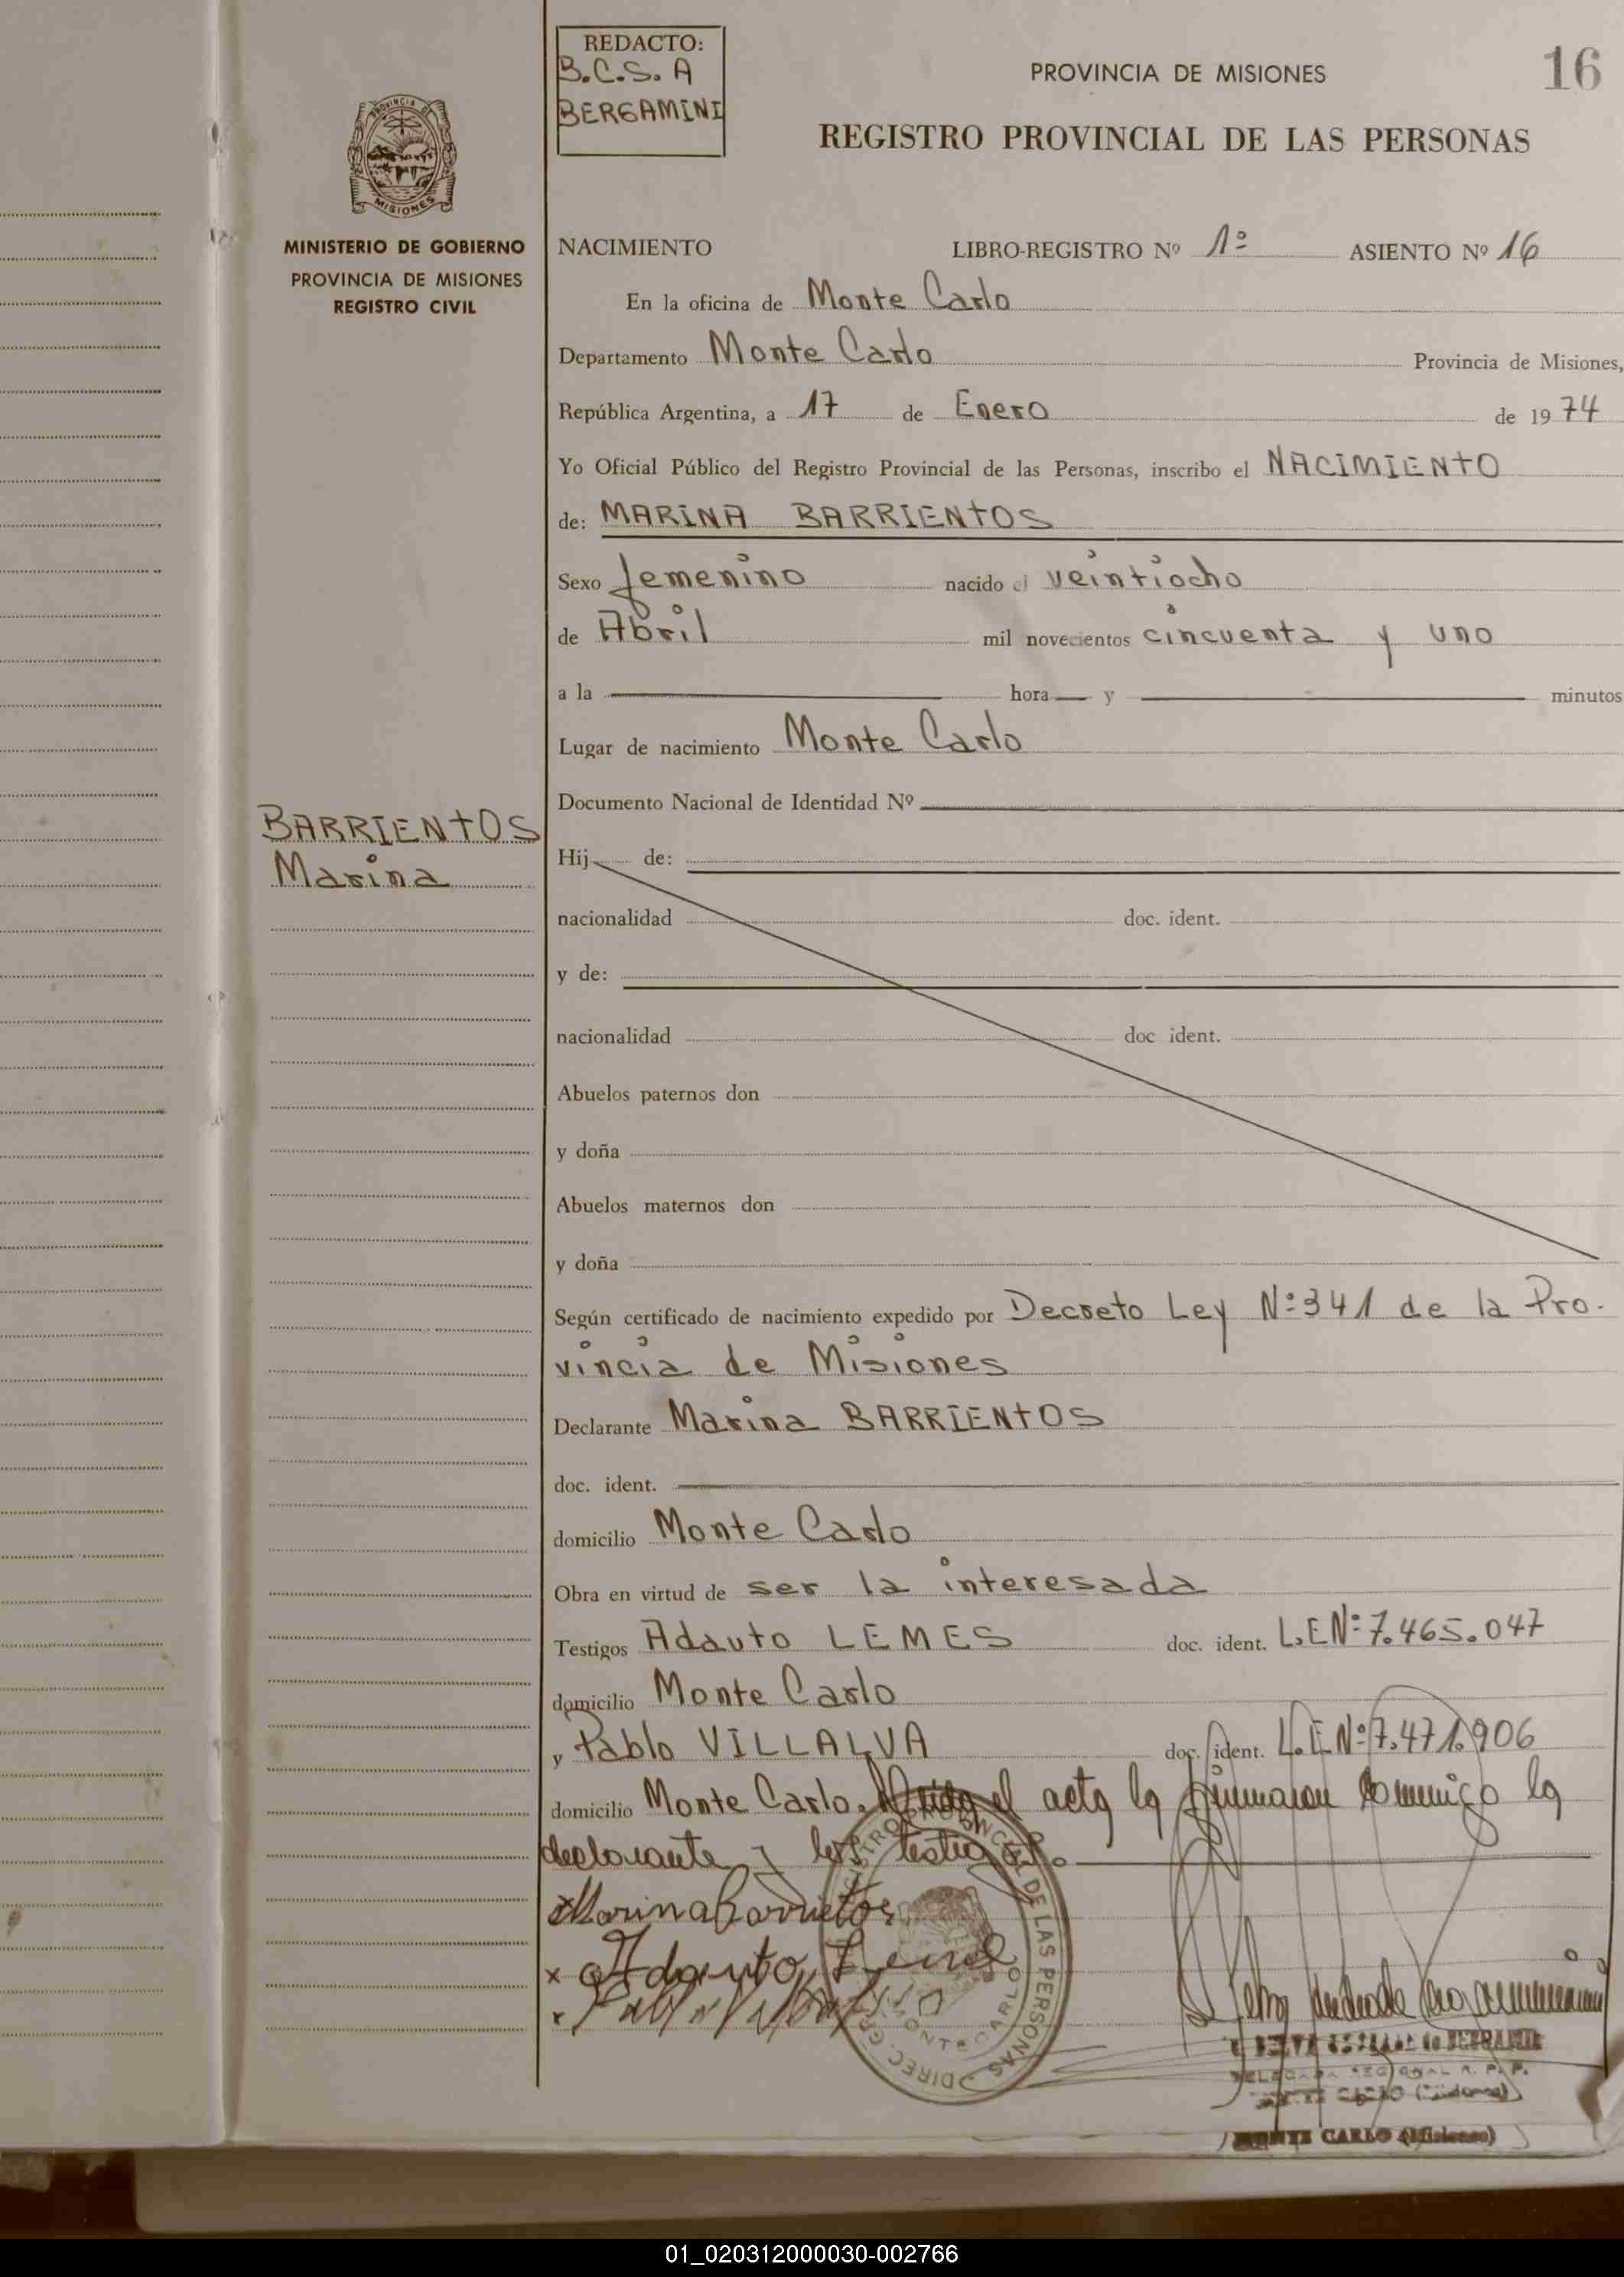 REDACTO:
B.C.S.A
BERGAMINI
PROVINCIA DE MISIONES
16
REGISTRO PROVINCIAL DE LAS PERSONAS
PROVINCIA DE
MISIONES
MINISTERIO DE GOBIERNO
PROVINCIA DE MISIONES
REGISTRO CIVIL
NACIMIENTO LIBRO-REGISTRO Nº 1º ASIENTO Nº 16
En la oficina de Monte Carlo
Departamento Monte Carlo Provincia de Misiones,
República Argentina, a 17 de Enero de 1974
Yo Oficial Público del Registro Provincial de las Personas, inscribo el NACIMIENTO
de: MARINA BARRIENTOS
Sexo femenino nacido el veintiocho
de Abril mil novecientos cincuenta y uno
a la hora y minutos
Lugar de nacimiento Monte Carlo
Documento Nacional de Identidad Nº
BARRIENTOS
Marina
Hij de:
nacionalidad doc. ident.
y de:
nacionalidad doc ident.
Abuelos paternos don
y doña
Abuelos maternos don
y doña
Según certificado de nacimiento expedido por Decreto Ley Nº 341 de la Pro-
vincia de Misiones
Declarante Marina BARRIENTOS
doc. ident.
domicilio Monte Carlo
Obra en virtud de ser la interesada
Testigos Adauto LEMES doc. ident. L.E Nº 7.465.047
domicilio Monte Carlo
y Pablo VILLALVA doc. ident. L.E Nº 7.471.906
domicilio Monte Carlo. el acta la firmaron conmigo la
declarante y los testigos.
Marina Barrientos
x Adauto
x
DE LAS PERSONAS
MONTE CARLO
DIREC. GR
MONTE CARLO (Misiones)
01_020312000030-002766